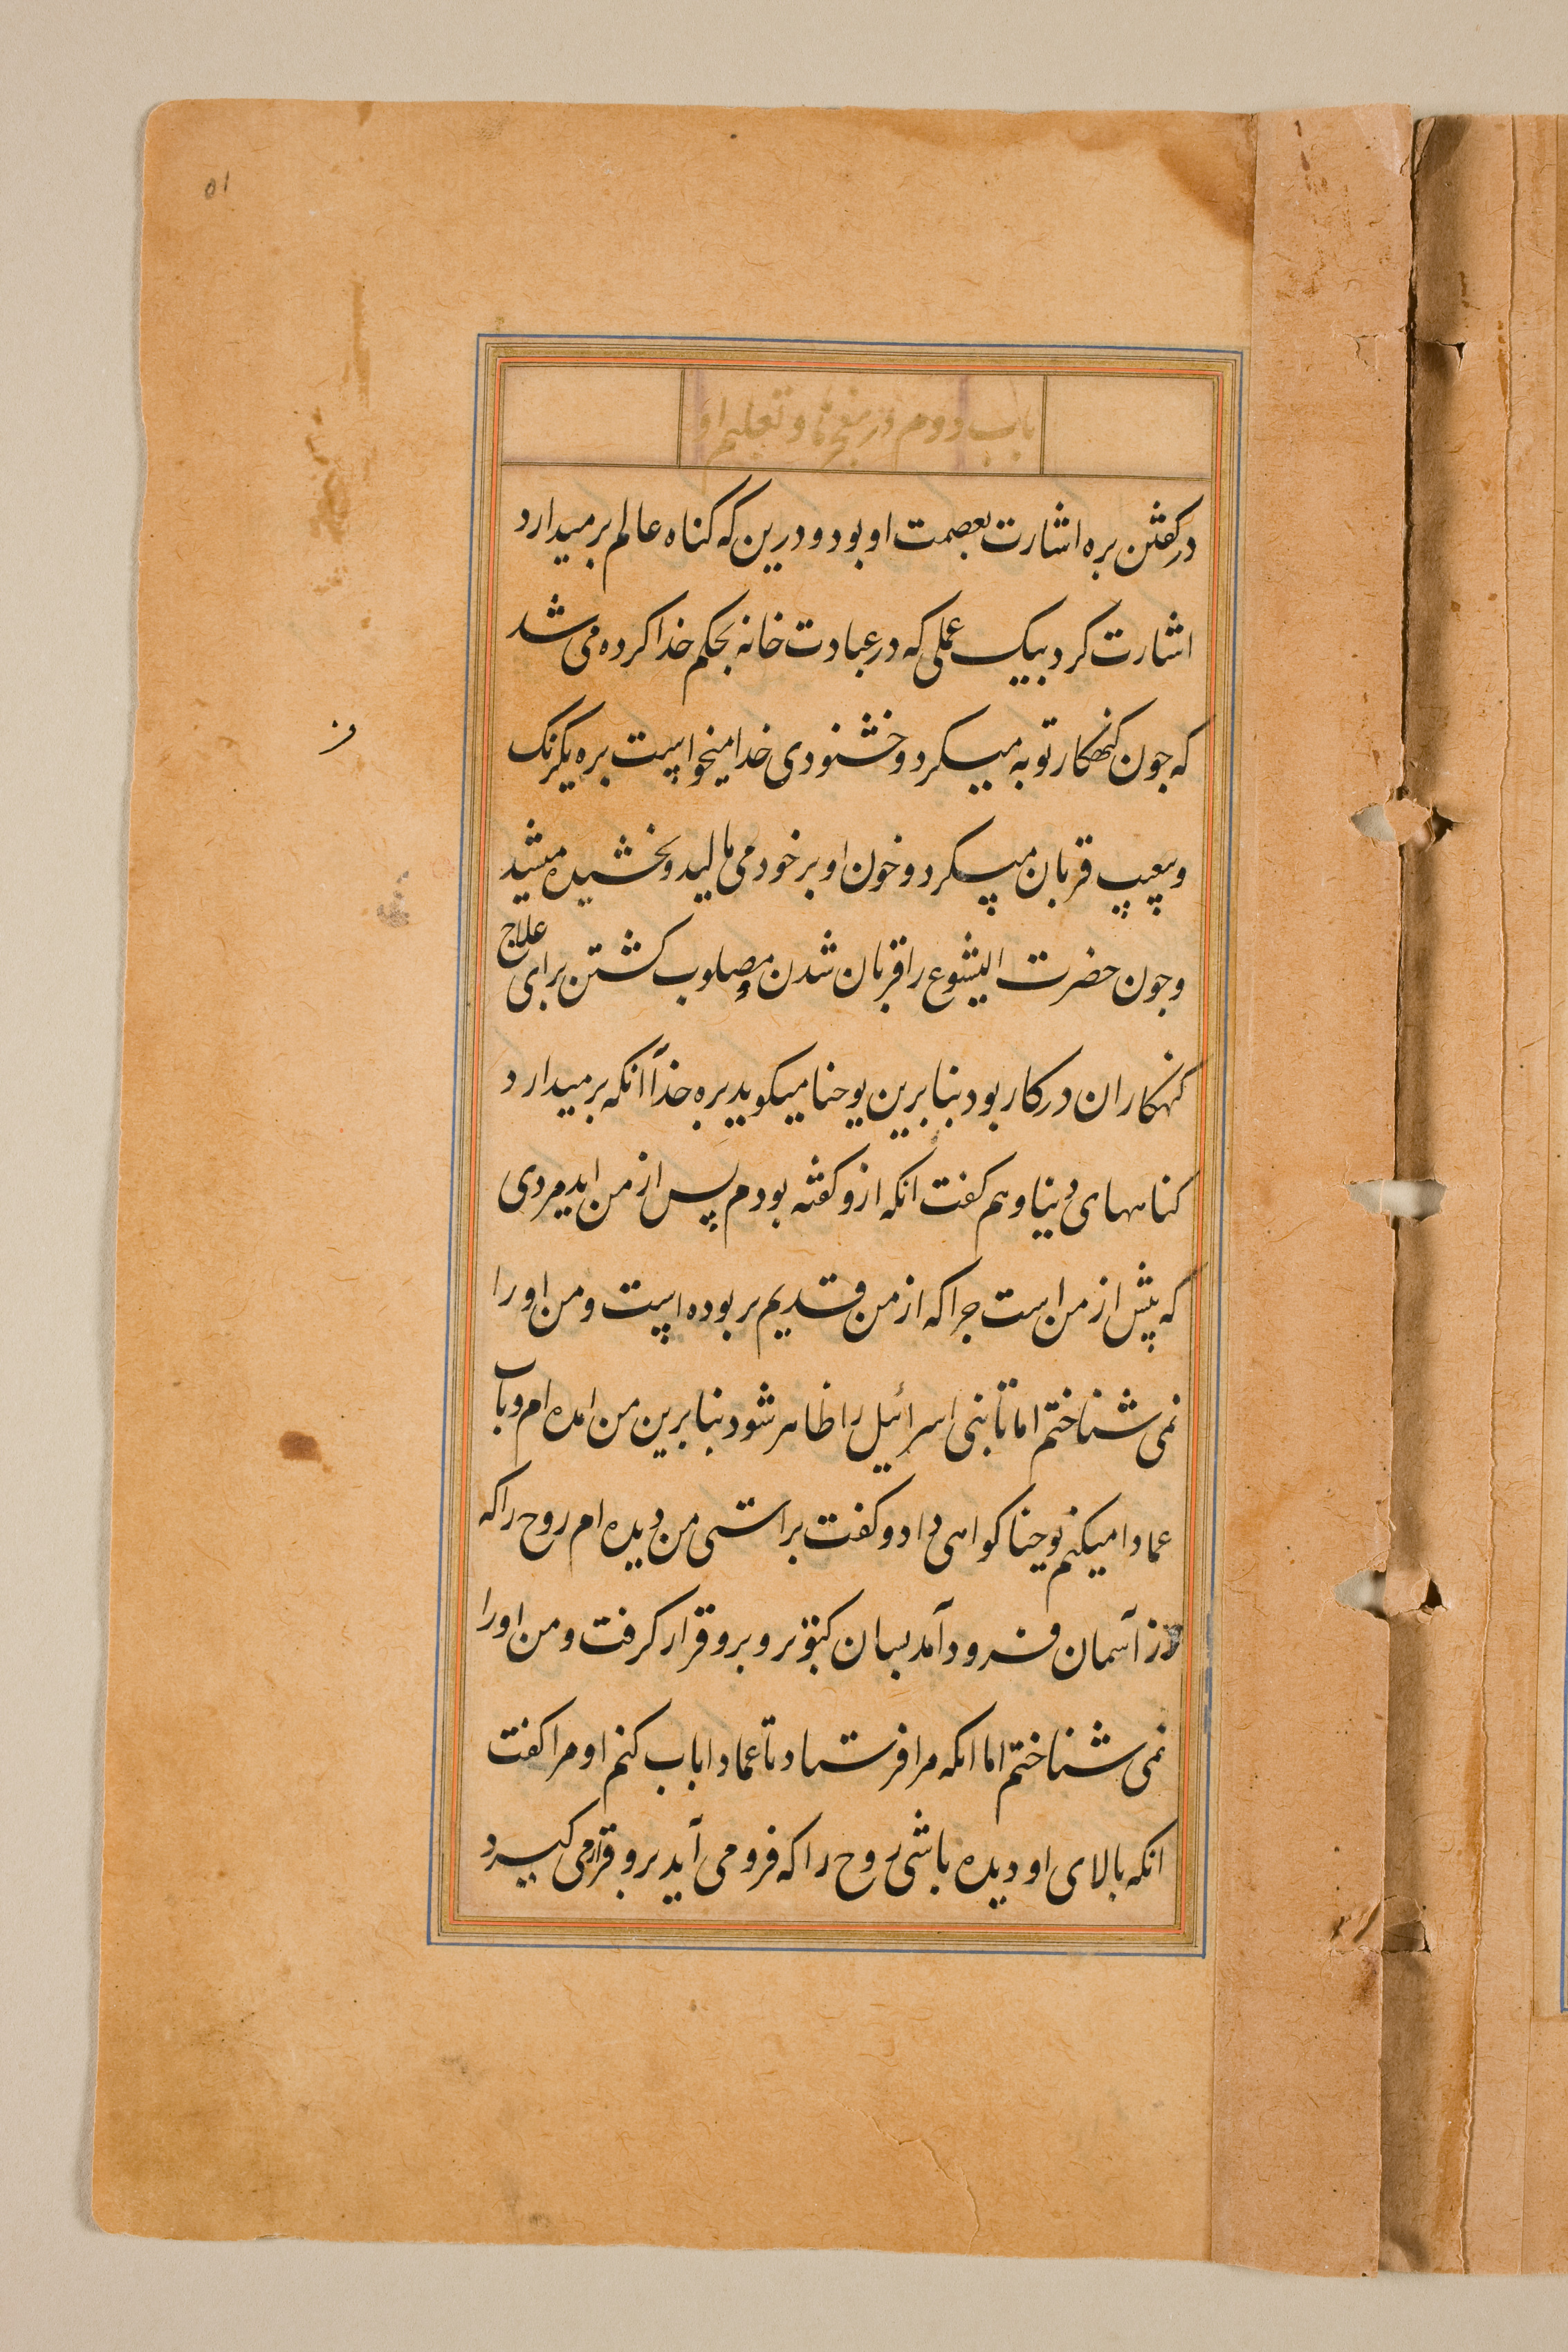 ۵۱
باب دوم در معجزها و تعلیم او
در کفتن بره اشارت بعصمت او بود و درین که کناه عالم بر میدارد
اشارت کرد بیک عملی که در عبادت خانه بحکم خدا کرده می شد
که جون کنهکار توبه میکرد و خشنودی خدا میخواست بره یکرنک
و بیعیب قربان میکرد و خون او بر خود می مالید و بخشیده میشد
و جون حضرت ایشوع را قربان شدن و مصلوب کشتن برای علاج
کنهکاران در کار بود بنا برین یوحنا میکوید بره خدا آنکه بر میدارد
کناههای دنیا و هم کفت انکه ازو کفته بودم پس از من اید مردی
که پیش از من است جرا که از من قدیم تر بوده است و من او را
نمی شناختم اما تا بنی اسرائیل را ظاهر شود بنا برین من امده ام و باب
عمادا میکنم یوحنا کواهی داد و کفت براستی من دیده ام روح را که
از آسمان فرود آمد بسان کبوتر و برو قرار کرفت و من او را
نمی شناختم اما انکه مرا فرستاد تا عمادا باب کنم او مرا کفت
انکه بالای او دیده باشی روح را که فرو می آید برو قرار می کیرد